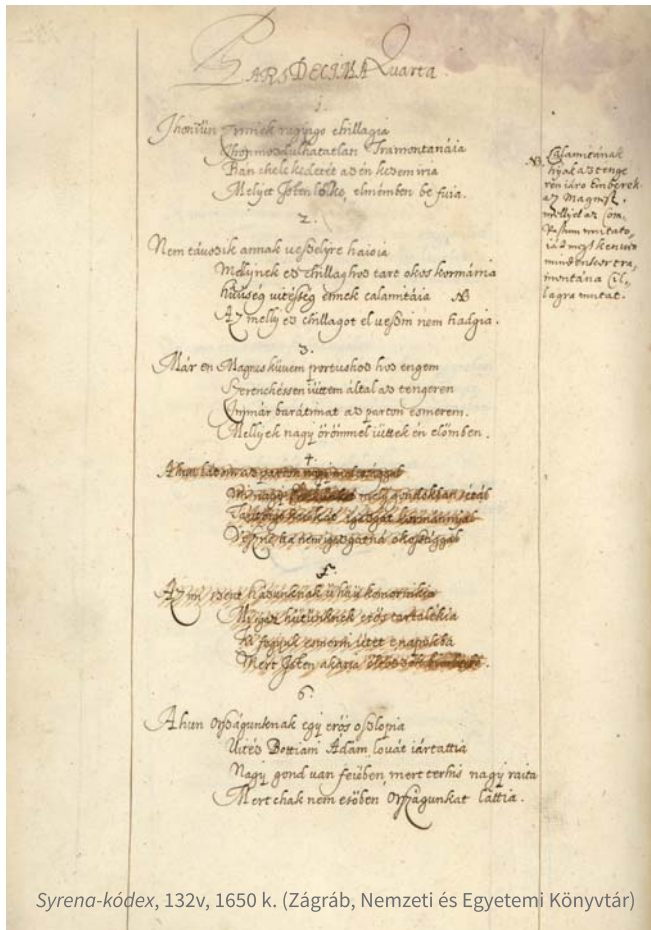 PARS DECIMA Quarta.
1.
Ihon fün ragiago chillagia
Ihon mozdulhatatlan Tramontanáia
Ban chelekedetét azén kezem iria
Melyet Isten lölke, elmémben be fuia.
2.
Nem távozik annak veßelÿre haioia
Mellynek ez chillaghoz tart okos kormánia
hüuség vitéßség ennek calamitáia NB
Az melly ez chillagot el veßni nem hadgia.
3.
Már en Magnes küuem portushoz hoz engem
Szerenchéssen iüttem által az tengeren
Immár barátimat az parton esmerem.
Mellyek nagy örömmel iüttek én elömben.
4.
Ahun látom az parton nagy
mi nagy mely gondokban

okossággal
5.
Az mi szent házunknak
Mi igaz hütünknek erös tartalékia
Ki fogiuk esmerni ütet
Mert Isten akaria
6.
Ahun Orßágunknak egy erös oßlopia
Vitéz Bottiani Ádám lovát iártattia
Nagy gond van feiében, mert terhis nagy raita
Mert chak nem esöben Orßágunkat láttia.
NB. Calamitának
hiják az tenge
ren iáro Emberek
az Magnest,
mellyel az Com
passum mutato,
iát megh kenuin
mindenkor tra,
montána Csil,
lagra mutat.
Syrena-kódex, 132v, 1650 k. (Zágráb, Nemzeti és Egyetemi Könyvtár)